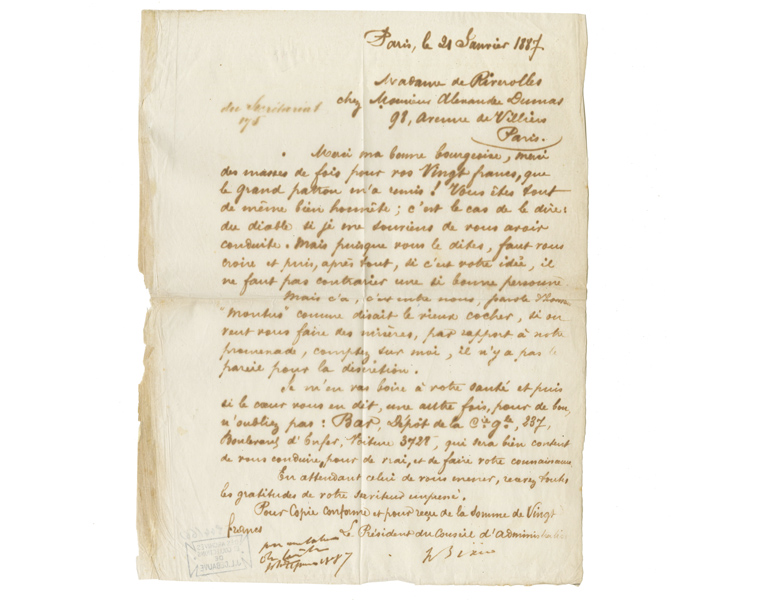 Paris, le 21 Janvier 1887
Madame de Riverolles
chez Monsieur Alexandre Dumas
du Secrétariat
178
98, Avenue de Villiers
Paris.
Merci ma bonne bourgeoise, merci
des masses de fois pour vos Vingt francs, que
le grand patron m'a remis ! Vous êtes tout
de même bien honnête ; c'est le cas de le dire :
du diable si je me souviens de vous avoir
conduite. Mais puisque vous le dites, faut vous
croire et puis, après tout, si c'est votre idée, il
ne faut pas contrarier une si bonne personne
Mais ç'a, c'est entre nous, parole
"Montus" comme disait le vieux cocher, si on
veut vous faire des misères, par rapport à notre
promenade, comptez sur moi, il n'y a pas le
pareil pour la discrétion.
Je m'en vas boire à votre santé et puis
si le cœur vous en dit, une autre fois, pour de bon,
n'oubliez pas : Bar, Dépôt de la Cie gle, 237,
Boulevard d'Enfer, Voiture 3728, qui sera bien content
de vous conduire, pour de vrai, et de faire votre connaissance
En attendant celui de vous mener, recevez toutes
les gratitudes de votre serviteur
Pour Copie conforme et pour reçu de la somme de Vingt
francs
Le Président du Conseil d'Administration
1887